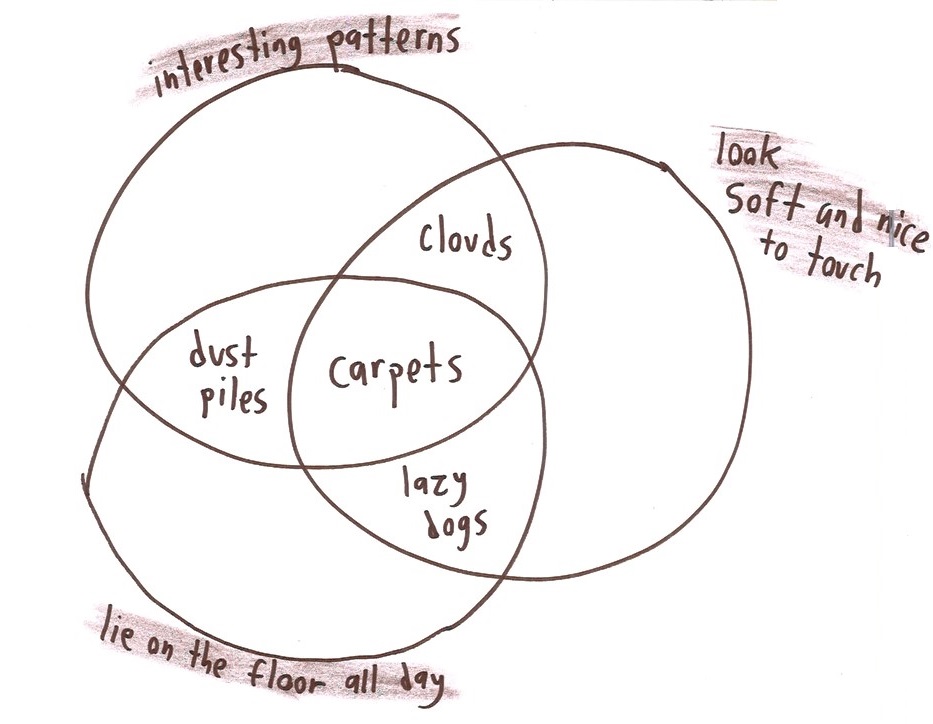 interesting patterns
look
soft and nice
to touch
clouds
dust
piles
carpets
lazy
dogs
lie on the floor all day